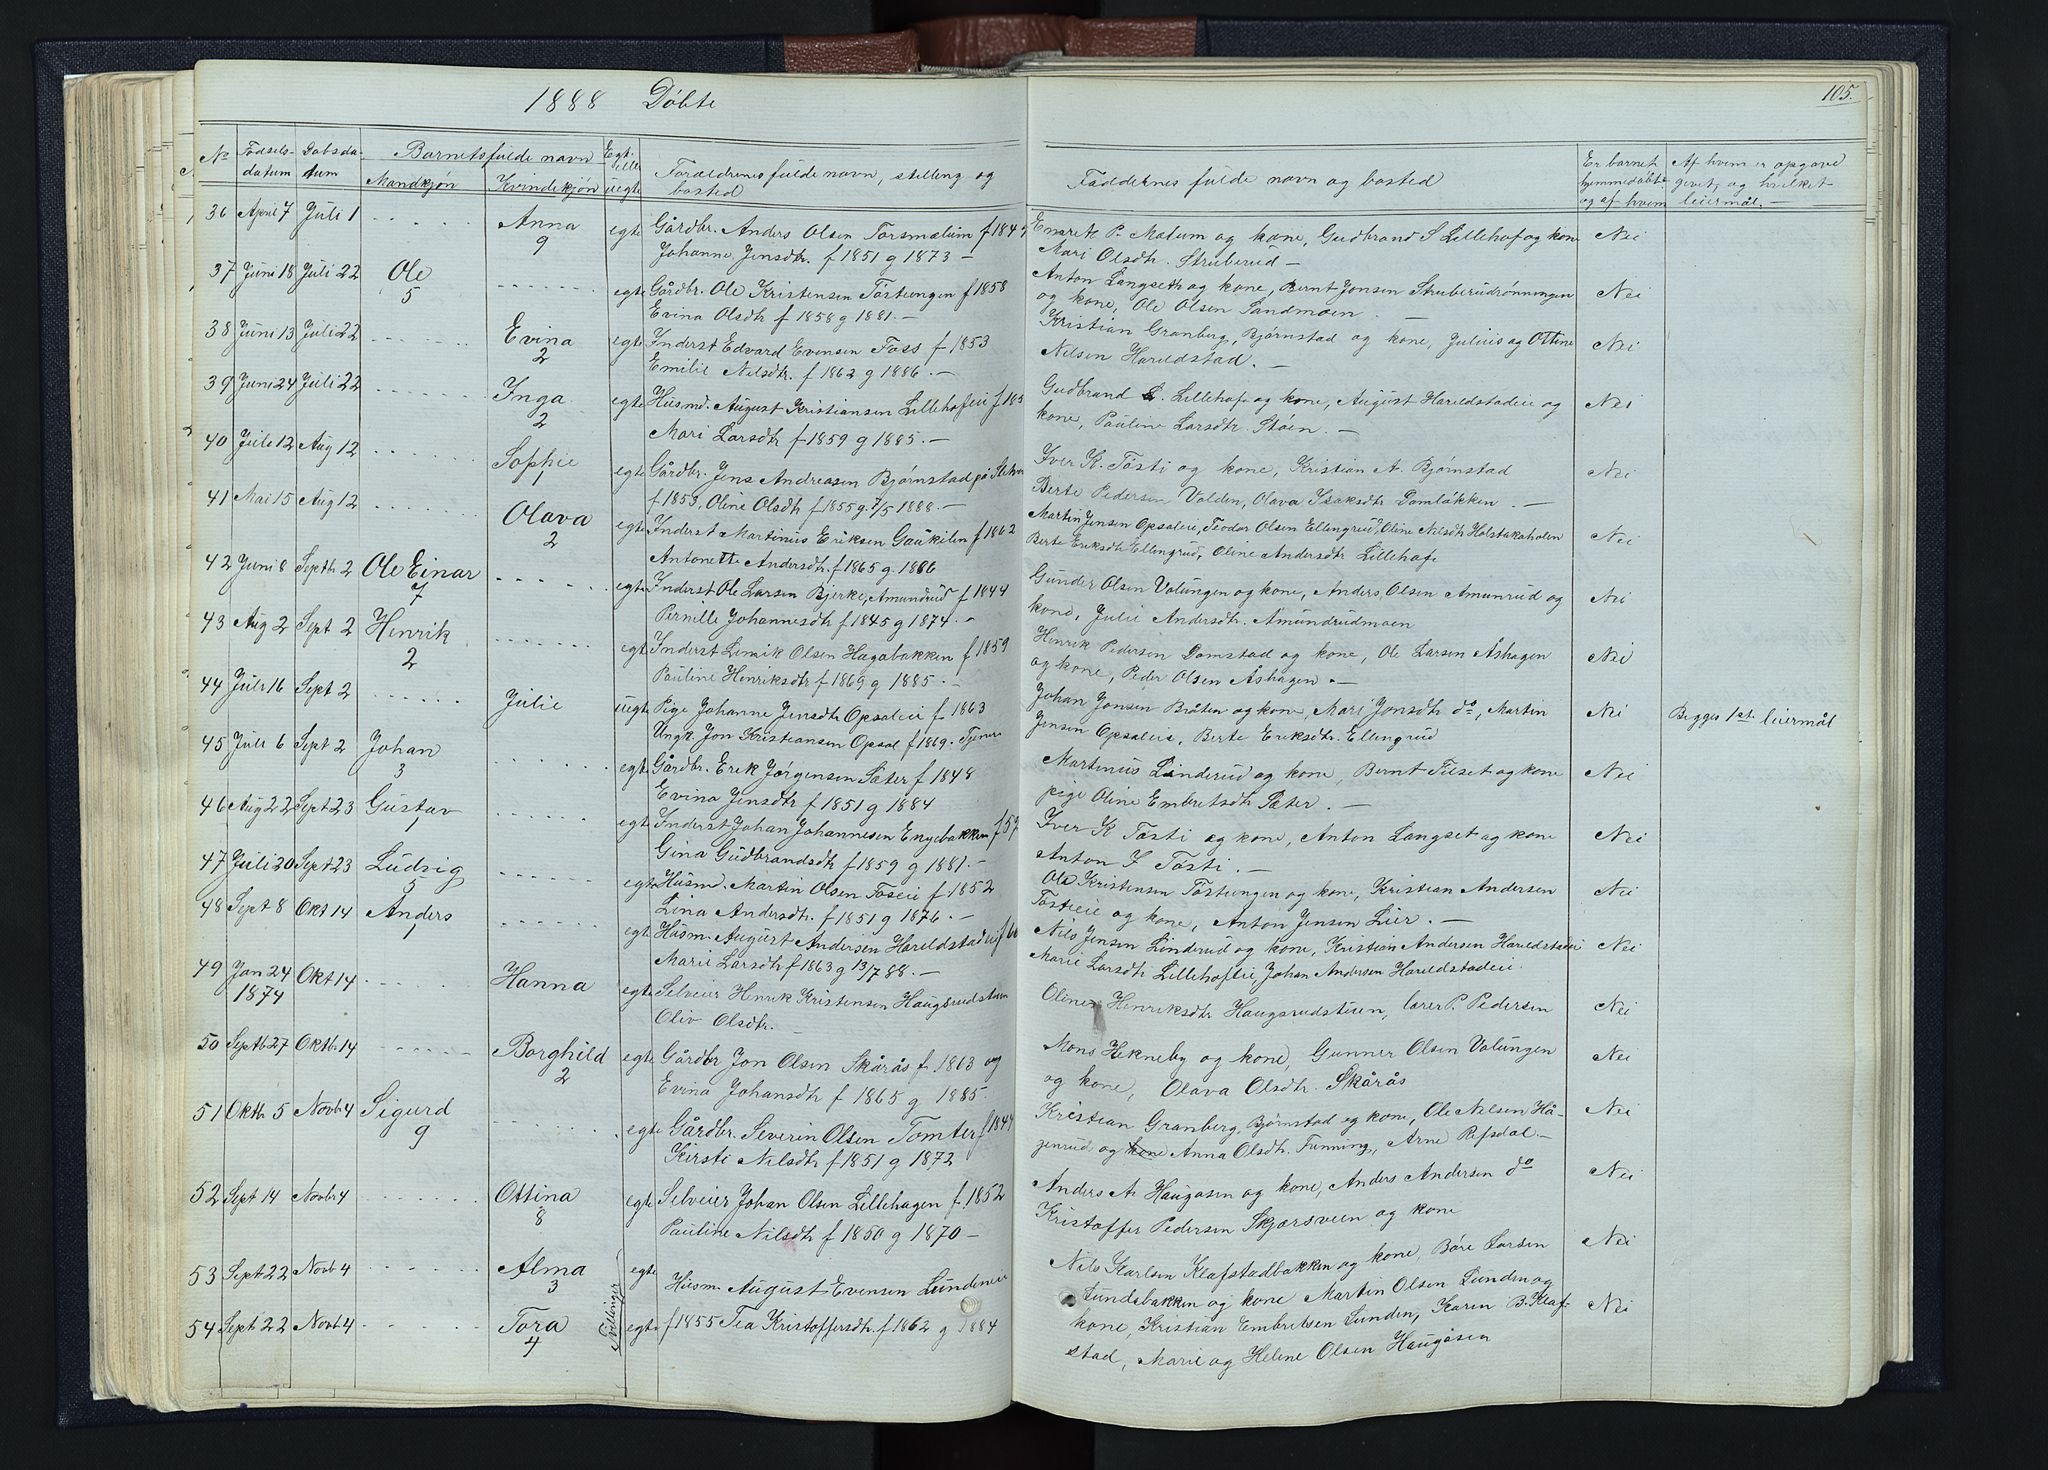 1888 Döbte
105.
No Fødsels- datum Daabsda- tum Barnets fulde navn Mandkjøn Kvindekjøn Egte eller uegte Forældrenes fulde navn, stilling og bosted Faddernes fulde navn og bosted Er barnet hjemmedøbt og af hvem Af hvem er opgave givet, og hvilket leiermål. —
36 April 7 Juli 1 Anna 9 egte Gårdbr. Anders Olsen Torsmælum f 184 Embret P. Mælum og kone, Gudbrand S Lillehof og kone Nei
Johanne Jensdtr. f 1851 g 1873 — Mari Olsdtr. Struberud —
37 Juni 18 Juli 22 Ole 5 egte Gårdbr. Ole Kristensen Töstiengen f 1858 Anton Langseth og kone, Bernt Jonsen Struberudrønningen Nei
Evina Olsdtr f 1858 g 1881. — og kone, Ole Olsen Sandmoen. —
38 Juni 13 Juli 22 Evina 2 egte Inderst Edvard Evensen Foss f 1853 Kristian Granberg, Bjørnstad og kone, Julius og Ottine Nei
Emilie Nilsdtr. f 1862 g 1886. — Nilsen Hareldstad. —
39 Juni 24 Juli 22 Inga 2 egte Husmd. August Kristiansen Lillehofeie f 185 Gudbrand S. Lillehof og kone, August Hareldstadeie og Nei
Mari Larsdtr f 1859 g 1885. — kone, Pauline Larsdtr. Støen. —
40 Juli 12 Aug 12 Sophie egte Gårdbr. Jens Andreasen Bjørnstad på Iver K. Tösti og kone, Kristian A. Bjørnstad Nei
f 1853, Oline Olsdtr f 1855 g 7/5 1888. — Berte Pedersen Volden, Olava Isaksdtr Damløkken. —
41 Mai 15 Aug 12 Olava 2 egte Inderst Martinus Eriksen Gaukilen f 1862 Martin Jensen Opsaleie, Teodor Olsen Ellengrud, Oline Nilsdtr Holstakaholen Nei
Antonette Andersdtr. f 1865 g. 1886 Berte Eriksdtr Ellengrud, Oline Andersdtr Lillehof.
42 Juni 8 Septbr 2 Ole Einar 7 egte Inderst Ole Larsen Bjerke, Amundrud f 1844 Gunder Olsen Volungen og kone, Anders Olsen Amunrud og Nei
Pernille Johannesdtr f 1845 g 1874. — kone, Julie Andersdtr. Amundrudmoen
43 Aug 2 Sept 2 Henrik 2 egte Inderst Lemik Olsen Hagabakken f 1859 Henrik Pedersen Damstad og kone, Ole Larsen Åshagen Nei
Pauline Henriksdtr f 1869 g 1885. — og kone, Peder Olsen Åshagen. —
44 Juli 16 Sept 2 Julie uegte Pige Johanne Jensdtr Opsaleie f 1863 Johan Jonsen Bråten og kone, Mari Jonsdtr do, Martin Nei Begges 1st. leiermål
Ungk. Jon Kristiansen Opsal f 1869. Tjener Jensen Opsaleie, Berte Eriksdtr. Ellengrud
45 Juli 6 Sept 2 Johan 3 egte Gårdbr. Erik Jørgensen Sæter f 1848 Martinus Linderud og kone, Bernt Filset og kone Nei
Evina Jensdtr f 1851 g 1884 pige Oline Embretsdtr Sæter. —
46 Aug 22 Sept 23 Gustav 1 egte Inderst Johan Johannesen Engebakken f 59 Iver K Tösti og kone, Anton Langset og kone Nei
Gina Gudbrandsdtr f 1859 g 1881. — Anton I Tösti. —
47 Juli 20 Sept 23 Ludvig 5 egte Husmd. Martin Olsen Foseie f 1852 Ole Kristensen Töstiengen og kone, Kristian Andersen Nei
Lina Andersdtr. f 1851 g 1876. — Töstieie og kone, Anton Jensen Lier. —
48 Sept 8 Okt 14 Anders 1 egte Husm. August Andersen Hareldstadeie f 60 Nils Jensen Linderud og kone, Kristian Andersen Hareldstadeie Nei
Marie Larsdtr f 1863 g 13/7 88. — Marie Larsdtr Lillehofeie, Johan Andersen Hareldstadeie.
49 Jan 24 1874 Okt 14 Hanna egte Selveier Henrik Kristensen Haugsrudstuen Oline Henriksdtr Haugsrudstuen, lærer P. Pedersen Nei
Oliv Olsdtr. —
50 Septb 27 Oktb. 14 Borghild 2 egte Gårdbr Jon Olsen Skårås f. 1863 og Mons Hekneby og kone, Gunner Olsen Volungen Nei
Evina Johansdtr f 1865 g 1885. og kone, Olava Olsdtr. Skårås
51 Oktb. 5 Novb 4 Sigurd 9 egte Gårdbr. Severin Olsen Tomter f 184 Kristian Granberg, Bjørnstad og kone, Ole Nilsen Hå- Nei
Kirsti Nilsdtr f 1851 g 1872 genrud og kone Anna Olsdtr. Funning, Arne Refsdal. —
52 Sept 14 Novbr 4 Ottina 8 egte Selveier Johan Olsen Lillehagen f. 1852 Anders A. Haugåsen og kone, Anders Andersen do Nei
Pauline Nilsdtr f 1850 g 1870 — Kristoffer Pedersen Skjærsveen og kone
53 Sept 22 Novb 4 Alma 3 Tvillinger egte Husm August Evensen Lundeneie Nils Karlsen Klafstadbakken og kone, Børe Larsen Nei
Lundsbakken og kone Martin Olsen Lunden og
54 Sept 22 Novb 4 Tora 4 egte f 1855 Tea Kristoffersdtr. f 1862 g 1884 kone, Kristian Embretsen Lunden, Karen B. Klaf- Nei
stad, Marie og Helene Olsen Haugåsen